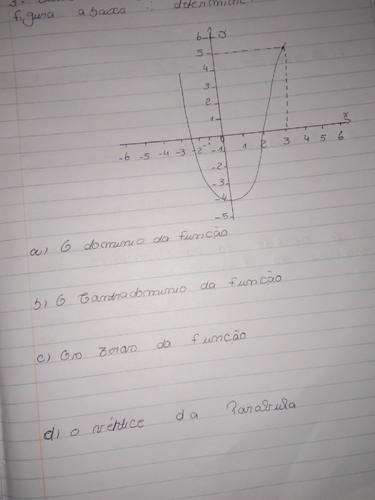 figura abaixo : determine:
6
5
4
3
2
1
x
-6 -5 -4 -3 -2 -1 1 2 3 4 5 6
-1
-2
-3
-4
-5
a) O dominio da função
b) O Contradominio da função
c) Os zeros da função
d) o vértice da Parabula